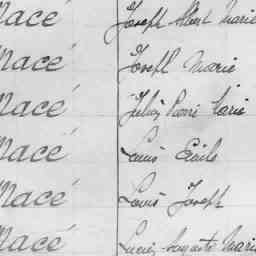 Macé Joseph Albert Marie
Macé Joseph Marie
Macé Julien Pierre Marie
Macé Louis Emile
Macé Louis Joseph
Macé Lucien Auguste Marie